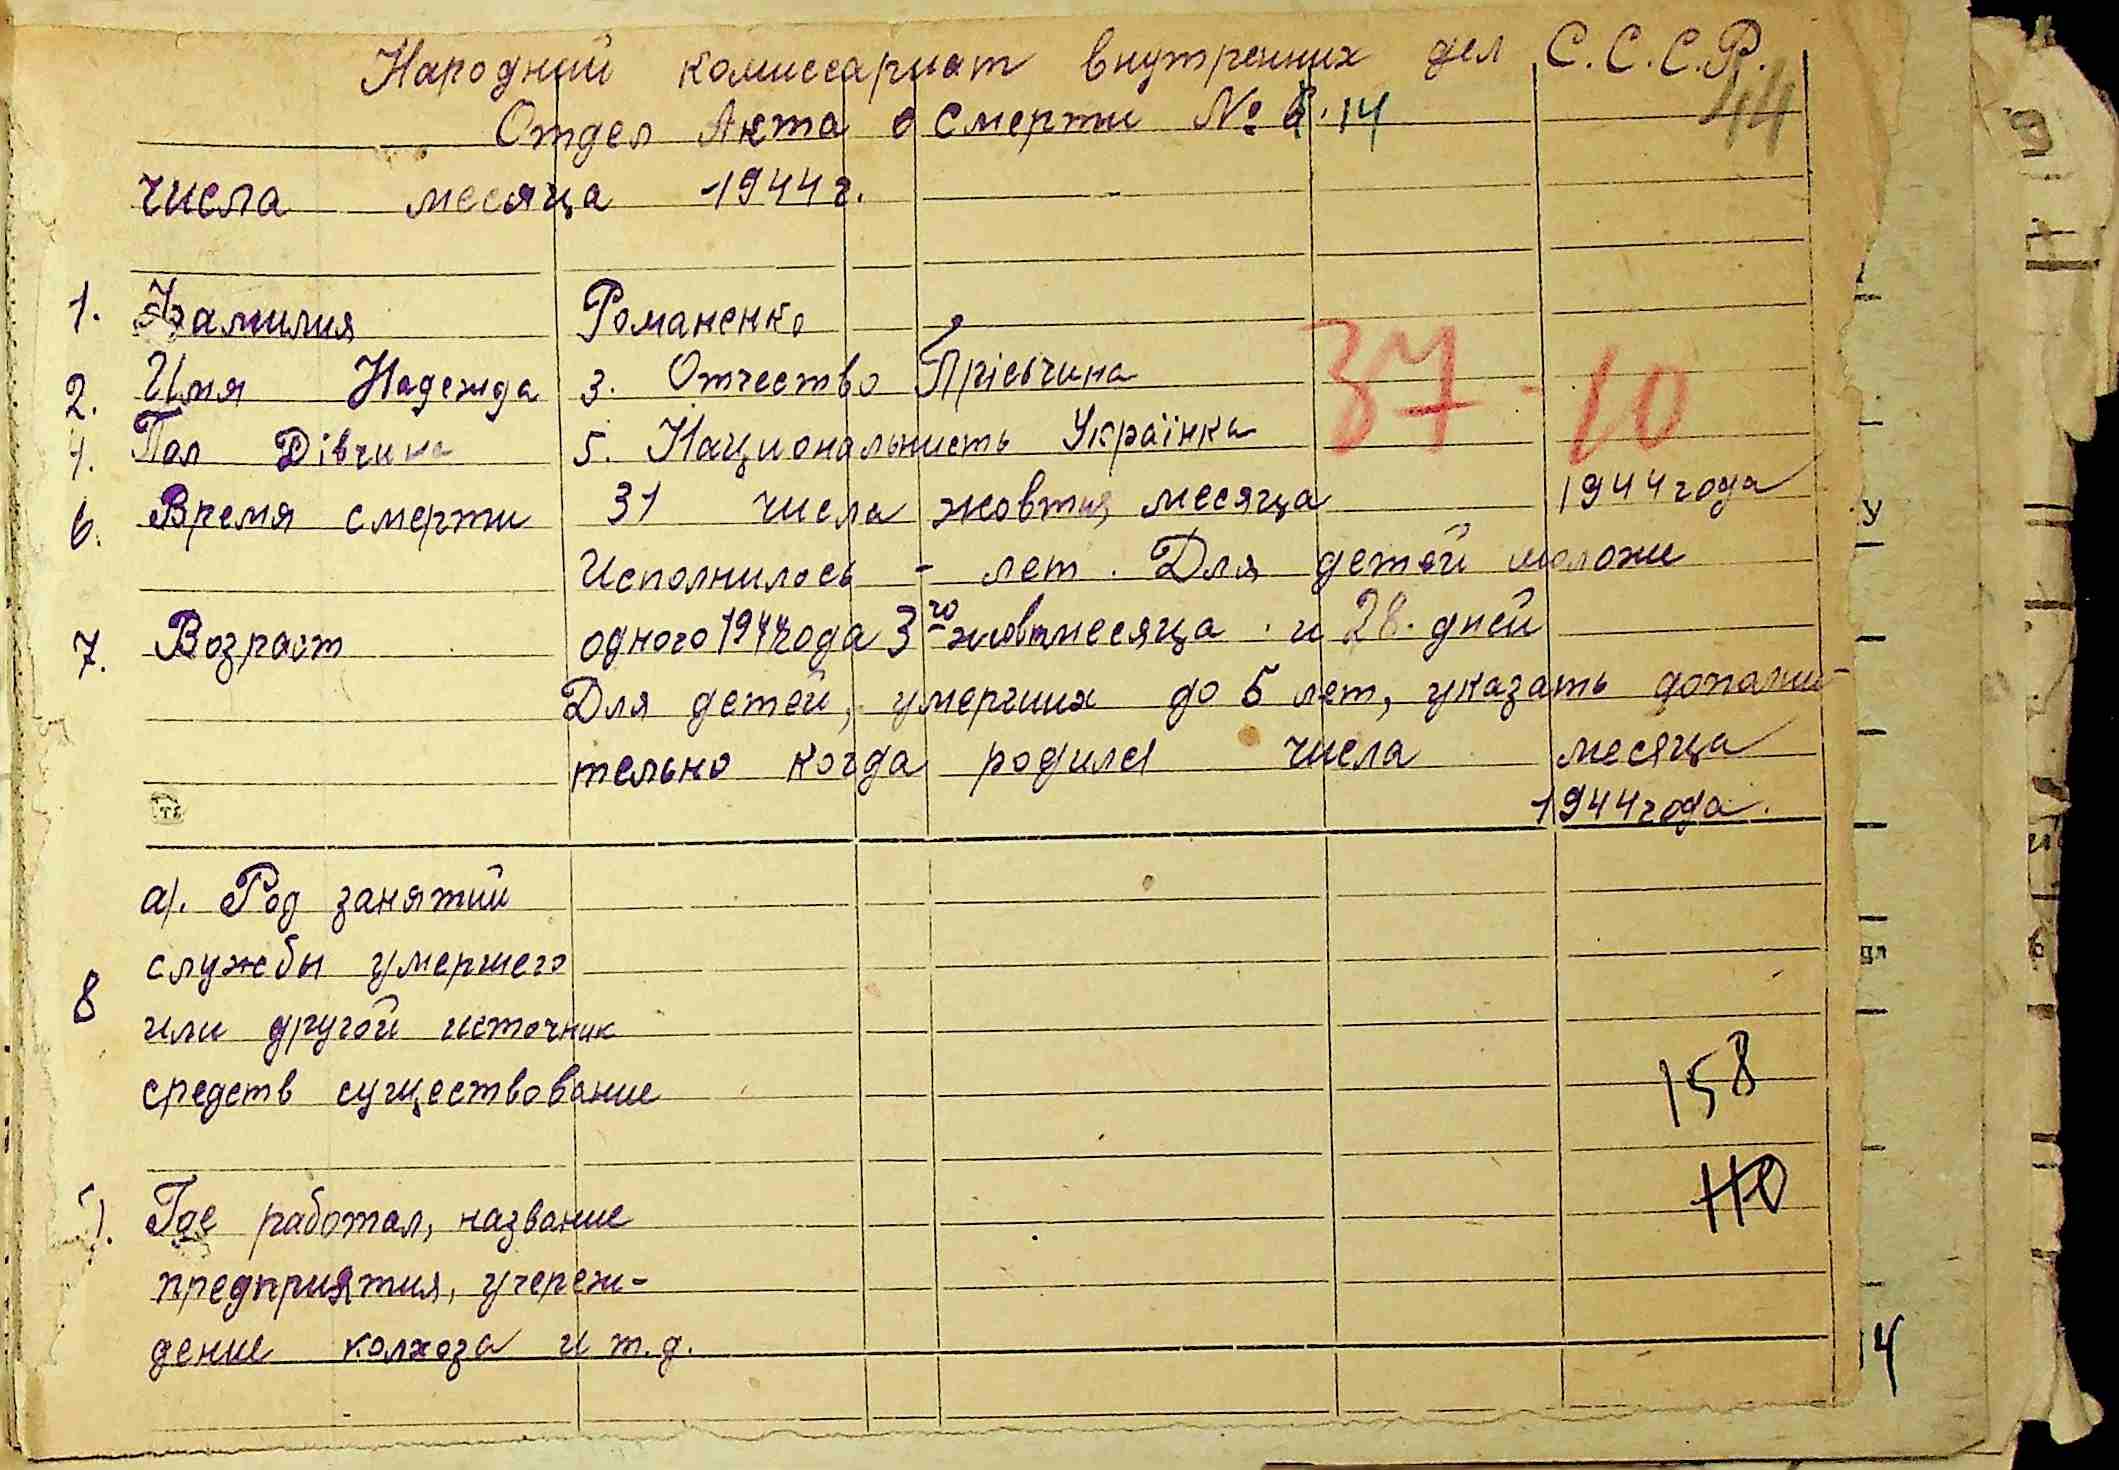 Народний комиссариат внутренних дел С.С.С.Р.
44
Отдел Акта о смерти № 14
числа месяца 1944 г.
1. Фамилия Романенко
2. Имя Надежда 3. Отчество
37-10
4. Пол Дівчина 5. Национальность Українка
6. Время смерти 31 числа жовтня месяца 1944 года
Исполнилось - лет. Для детей моложи
7. Возраст одного 1944 года 3го жовтмесяца и 28. дней
Для детей, умерших до 5 лет, указать дополни-
тельно когда родился числа месяца
1944 года.
а). Род занятий
службы умершего
8 или другой источник
средств существование
158
Где работал, название
110
предприятия, учереж-
дение колхоза и т.д.